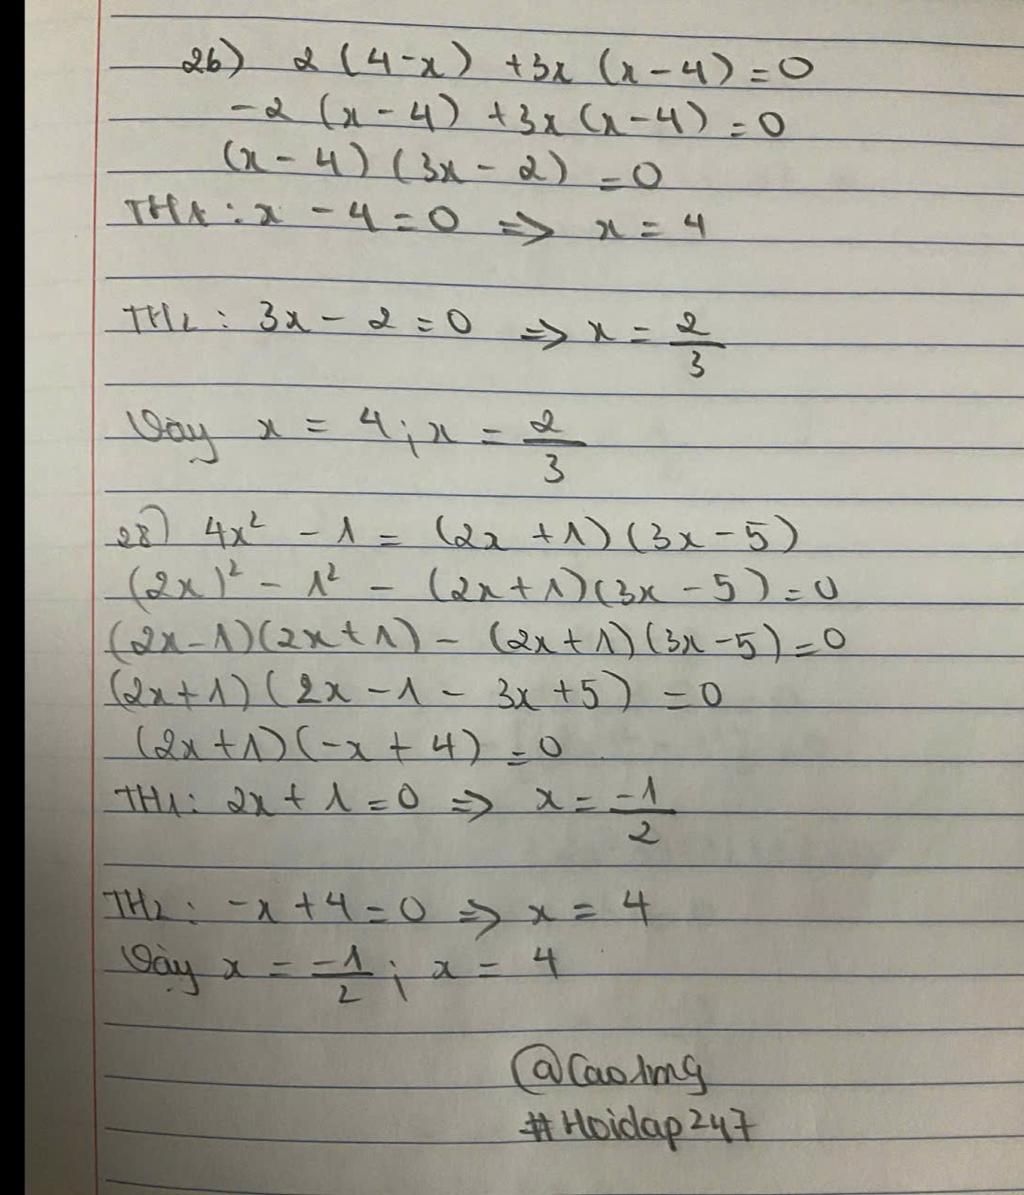 26) 2 (4-x) +3x (x-4) = 0
-2 (x-4) +3x (x-4) = 0
(x-4) (3x-2) = 0
TH1: x - 4 = 0 => x = 4
TH2: 3x - 2 = 0 => x = 2/3
Vậy x = 4; x = 2/3
28) 4x² - 1 = (2x + 1) (3x - 5)
(2x)² - 1² - (2x+1)(3x-5) = 0
(2x-1)(2x+1) - (2x+1)(3x-5) = 0
(2x+1) (2x - 1 - 3x + 5) = 0
(2x+1) (-x + 4) = 0
TH1: 2x + 1 = 0 => x = -1/2
TH2: -x + 4 = 0 => x = 4
Vậy x = -1/2; x = 4
#Hoidap247